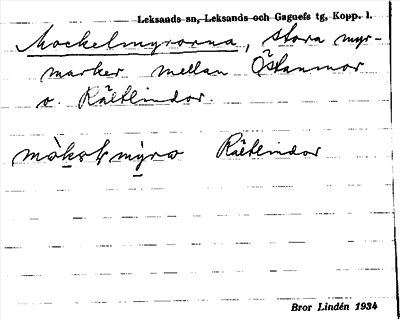 Leksands sn, Leksands och Gagnefs tg, Kopp. l.
Mockelmyrorna, stora myr-
marker mellan Östanmor
o. Rältlindor.
Rältlindor
Bror Lindén 1934